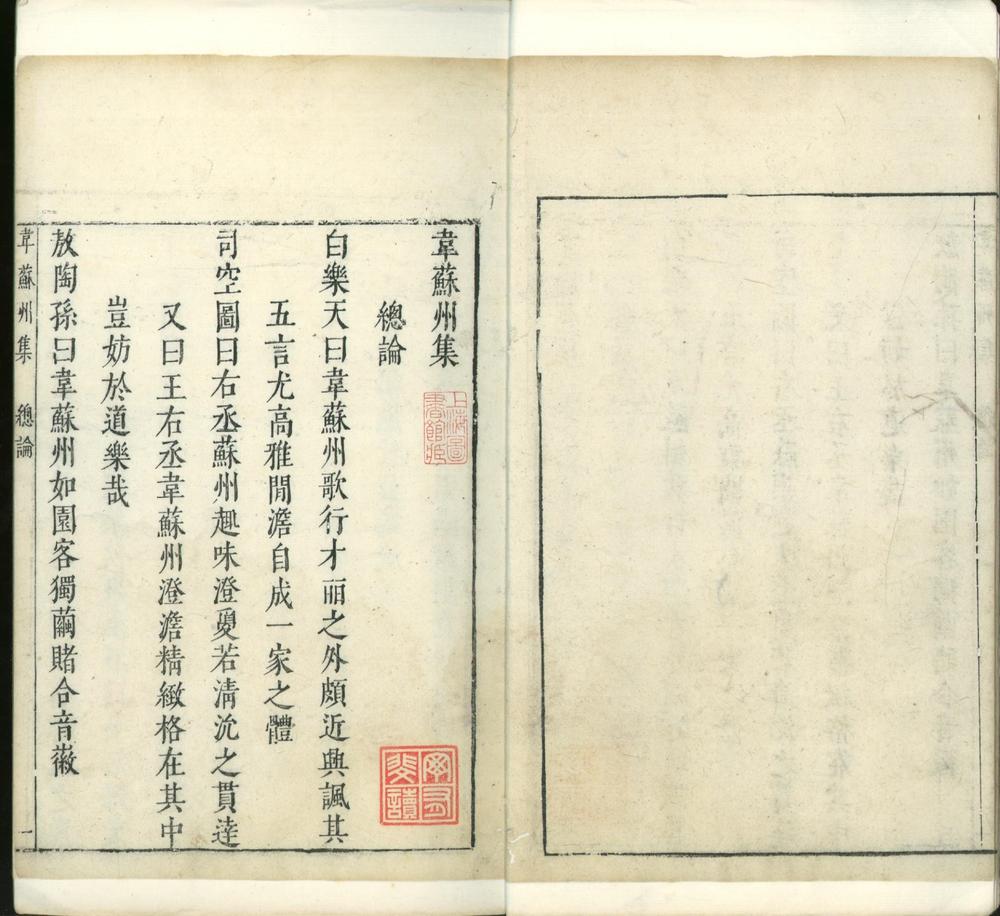 韋蘇州集
總論
白樂天曰韋蘇州歌行才丽之外頗近興諷其
五言尤高雅閒澹自成一家之體
司空圖曰右丞蘇州趣味澄敻若清沇之貫逵
又曰王右丞韋蘇州澄澹精緻格在其中
豈妨於道樂哉
敖陶孫曰韋蘇州如園客獨繭賭合音徽
韋蘇州集 總論 一
上海圖書館藏